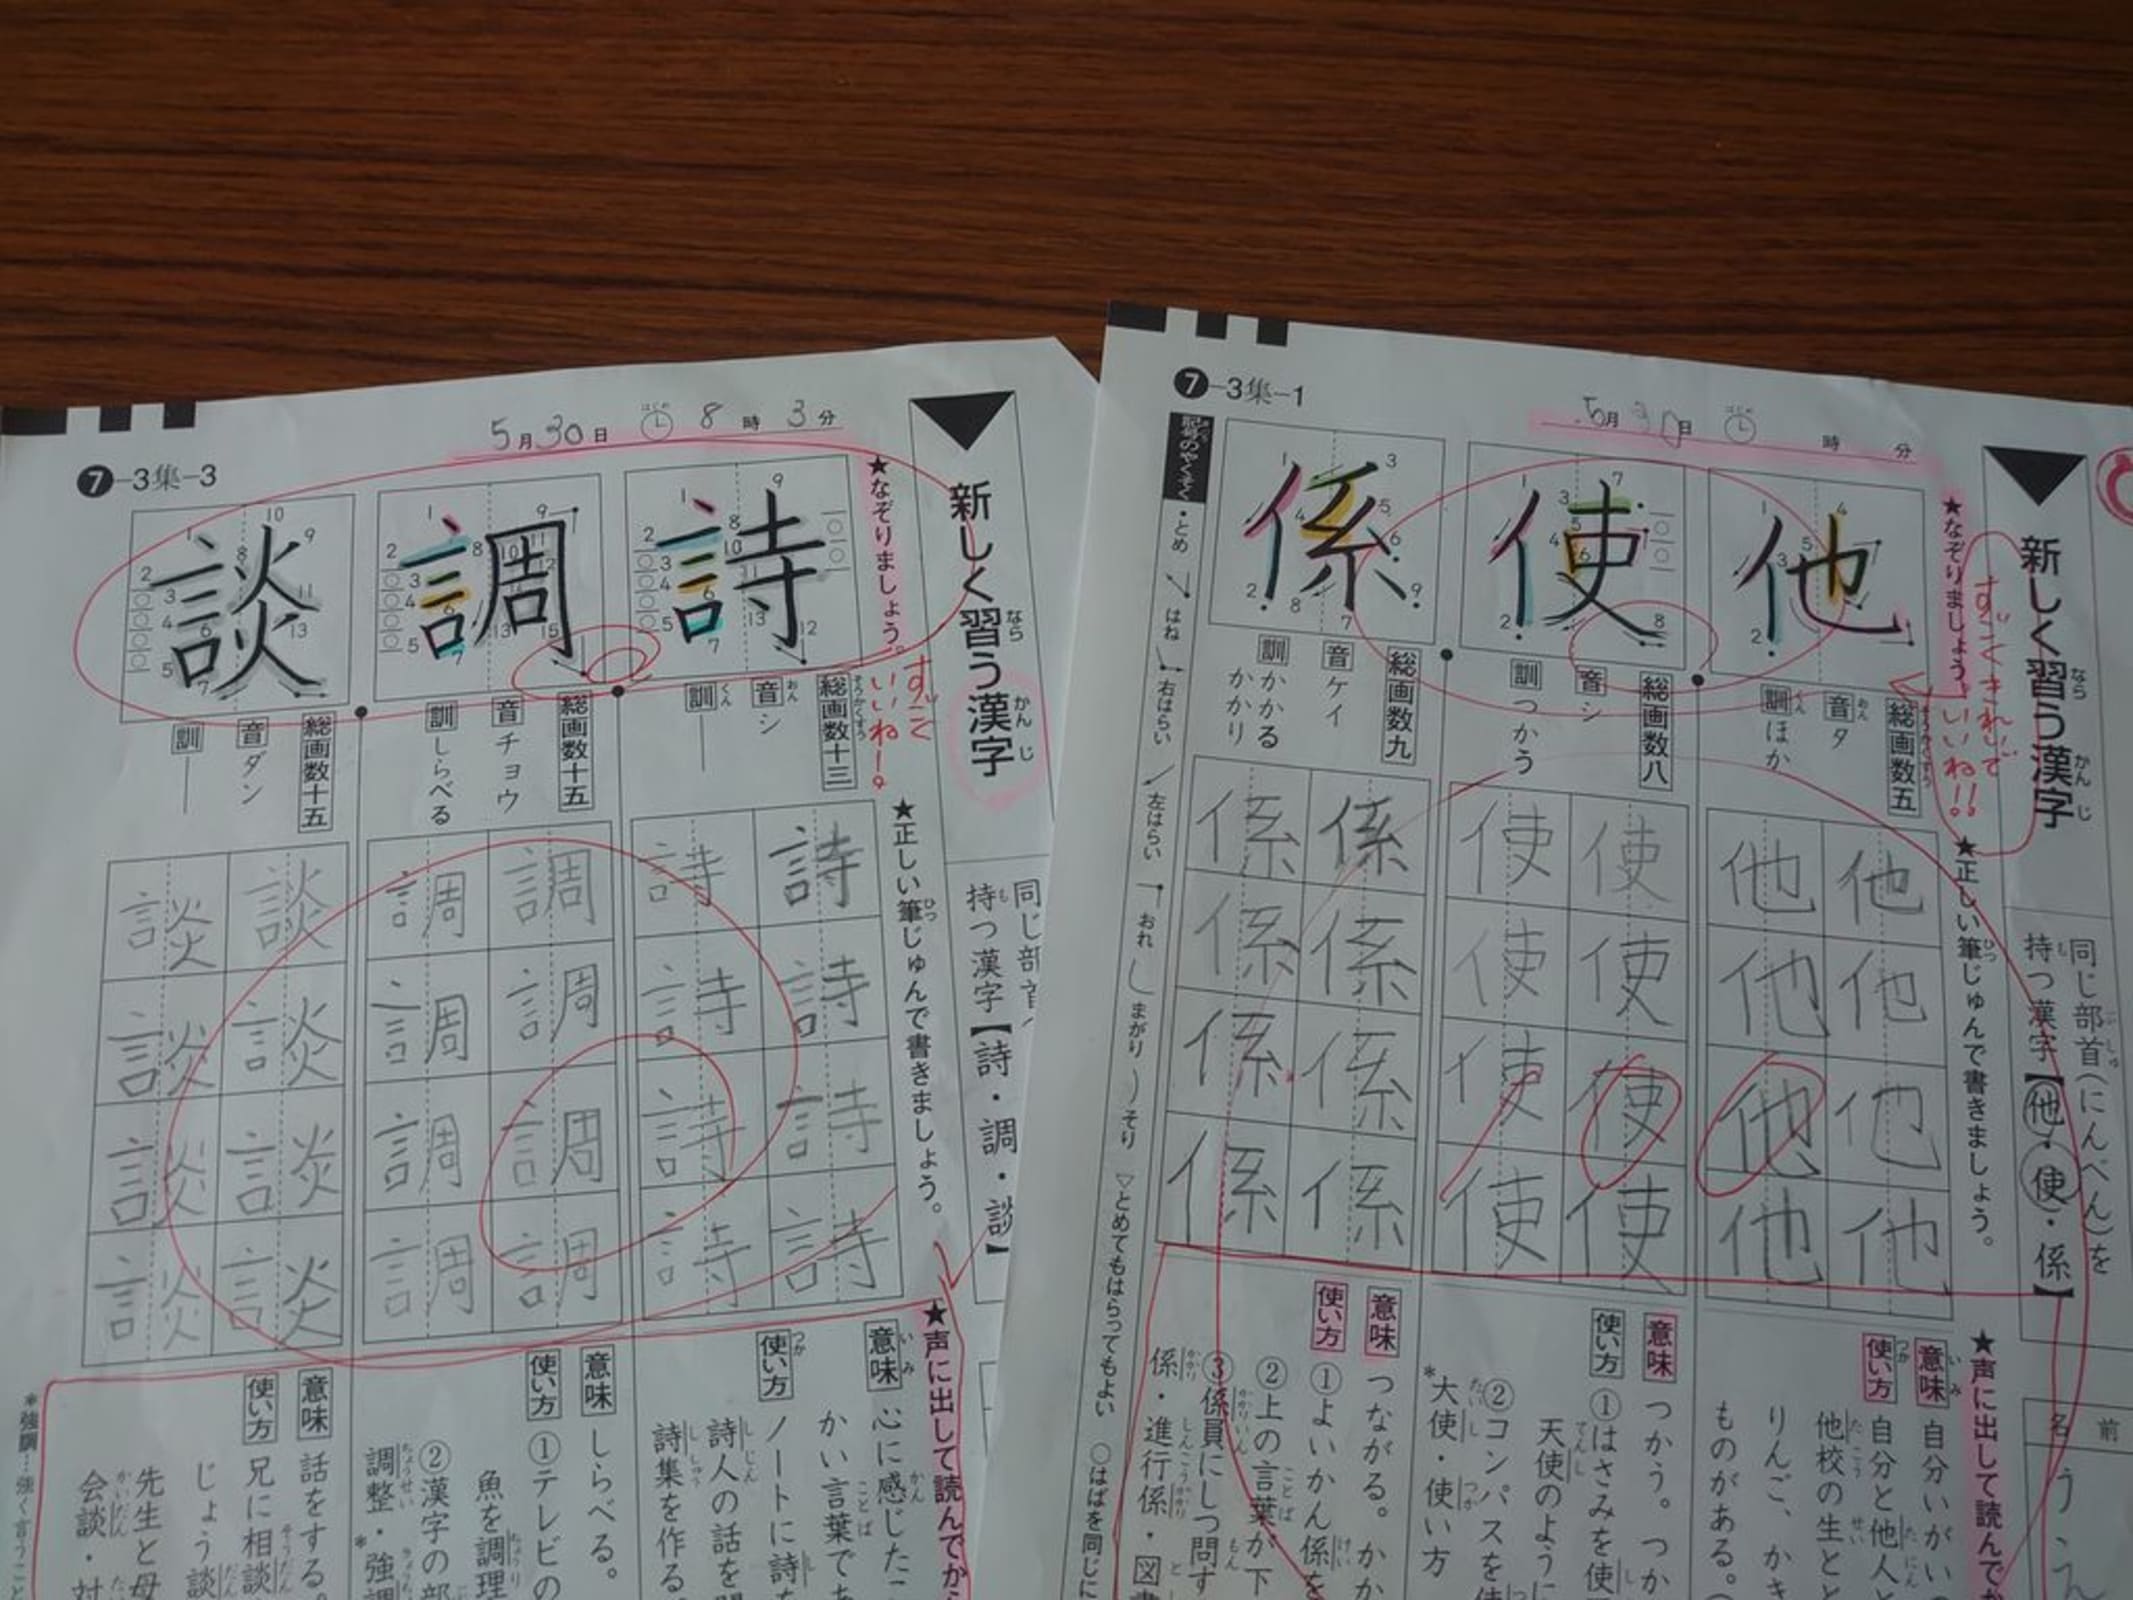 7-3集-1
5月30日 はじめ 時 分
新しく習う漢字
なら
かんじ
同じ部首(にんべん)を
持つ漢字【他・使・係】
名前
★なぞりましょう。
すごくきれいで
いいね!!
★正しい筆じゅんで書きましょう。
★声に出して読んでか
他
総画数五
音 タ
訓 ほか
他 他 他 他
他 他 他 他
意味 自分いがいの
使い方 自分と他人と
他校の生とと
りんご、かき
ものがある。
使
総画数八
音 シ
訓 つかう
使 使 使 使
使 使 使 使
意味 つかう。つか
使い方 ①はさみを使
天使のように
②コンパスを使
*大使・使い方
係
総画数九
音 ケイ
訓 かかる
かかり
係 係 係 係
係 係 係 係
意味 つながる。かか
使い方 ①よいかん係を
②上の言葉が下
③係員にしつ問す
係・進行係・図
記号のやくそく
・とめ はね 右はらい 左はらい おれ まがり そり ▽とめてもはらってもよい ○はばを同じに
7-3集-3
5月30日 はじめ 8時3分
新しく習う漢字
なら
かんじ
同じ部首
持つ漢字【詩・調・談】
★なぞりましょう。
すごく
いいねー。
★正しい筆じゅんで書きましょう。
★声に出して読んでから
詩
総画数十三
音 シ
訓 —
詩 詩 詩 詩
詩 詩 詩 詩
意味 心に感じたこ
かい言葉であ
使い方 ノートに詩を
詩人の話を聞
詩集を作る
調
総画数十五
音 チョウ
訓 しらべる
調 調 調 調
調 調 調 調
意味 しらべる。
使い方 ①テレビの
魚を調理
②漢字の部
調整・*強調
談
総画数十五
音 ダン
訓 —
談 談 談 談
談 談 談 談
意味 話をする。
使い方 兄に相談
じょう談
先生と母
会談・対
*強調…強く言うこと